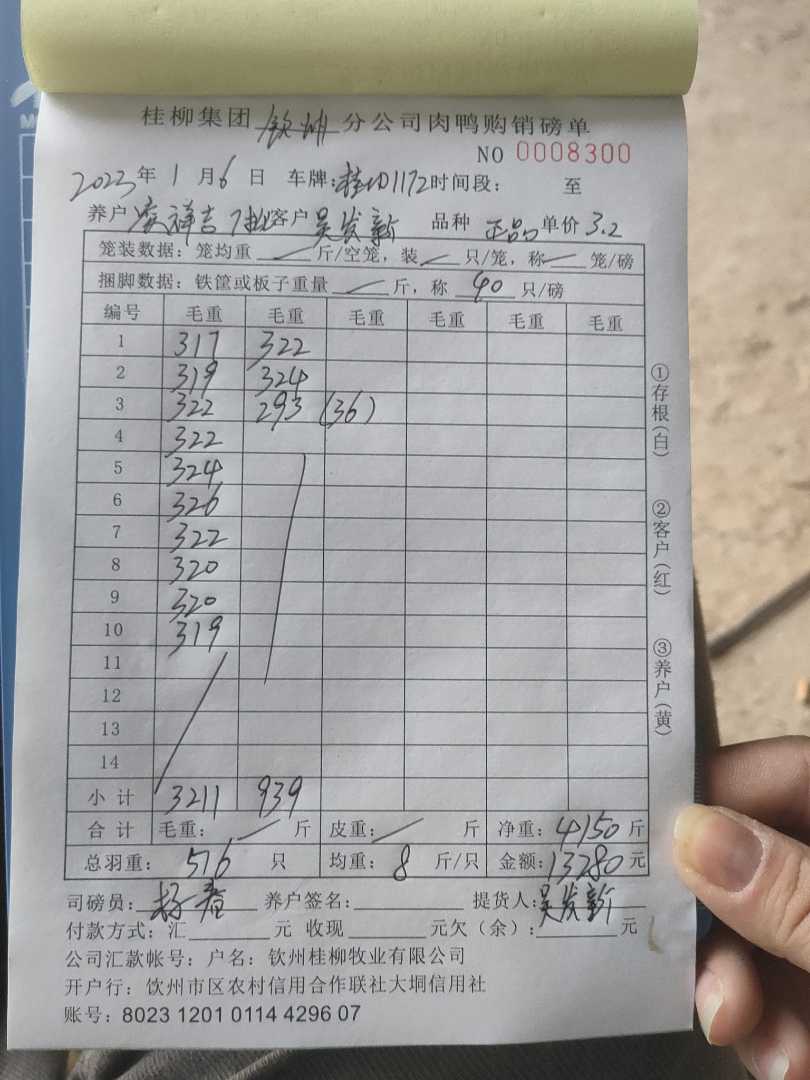 桂柳集团 钦州 分公司肉鸭购销磅单
NO 0008300
2023年 1 月 6 日 车牌: 1172 时间段: 至
养户 祥吉 客户 吴发新 品种 正品 单价 3.2
笼装数据: 笼均重 斤/空笼, 装 只/笼, 称 笼/磅
捆脚数据: 铁筐或板子重量 斤, 称 40 只/磅
编号 毛重 毛重 毛重 毛重 毛重 毛重
1 317 322
2 319 324
3 322 293 (36)
4 322
5 324
6 326
7 322
8 320
9 320
10 319
11
12
13
14
小计 3211 939
合计 毛重: 斤 皮重: 斤 净重: 4150 斤
总羽重: 516 只 均重: 8 斤/只 金额: 13280 元
司磅员: 杨春 养户签名: 提货人: 吴发新
付款方式: 汇 元 收现 元欠(余): 元
公司汇款帐号: 户名: 钦州桂柳牧业有限公司
开户行: 饮州市区农村信用合作联社大垌信用社
账号: 8023 1201 0114 4296 07
①存根(白)
②客户(红)
③养户(黄)